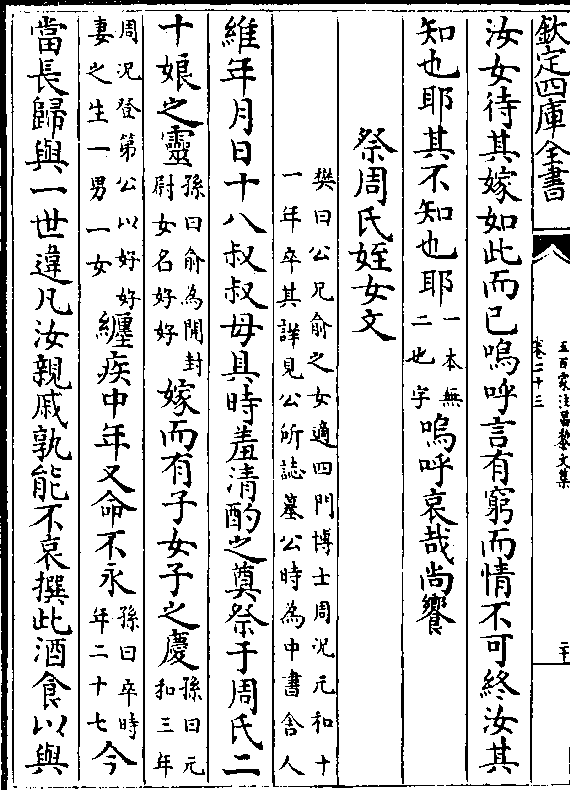 欽定四庫全書
五百家注昌黎文集
卷二十三
二十
汝女待其嫁如此而已嗚呼言有窮而情不可終汝其
知也耶其不知也耶一本無二也字嗚呼哀哉尚饗
祭周氏姪女文
樊曰公兄俞之女適四門博士周況元和十一年卒其詳見公所誌墓公時為中書舍人
維年月日十八叔叔母具時羞清酌之奠祭于周氏二
十娘之靈孫曰俞為開封尉女名好好嫁而有子女子之慶孫曰元和三年
周況登第公以好好妻之生一男一女纏疾中年又命不永孫曰卒時年二十七今
當長歸與一世違凡汝親戚孰能不哀撰此酒食以與